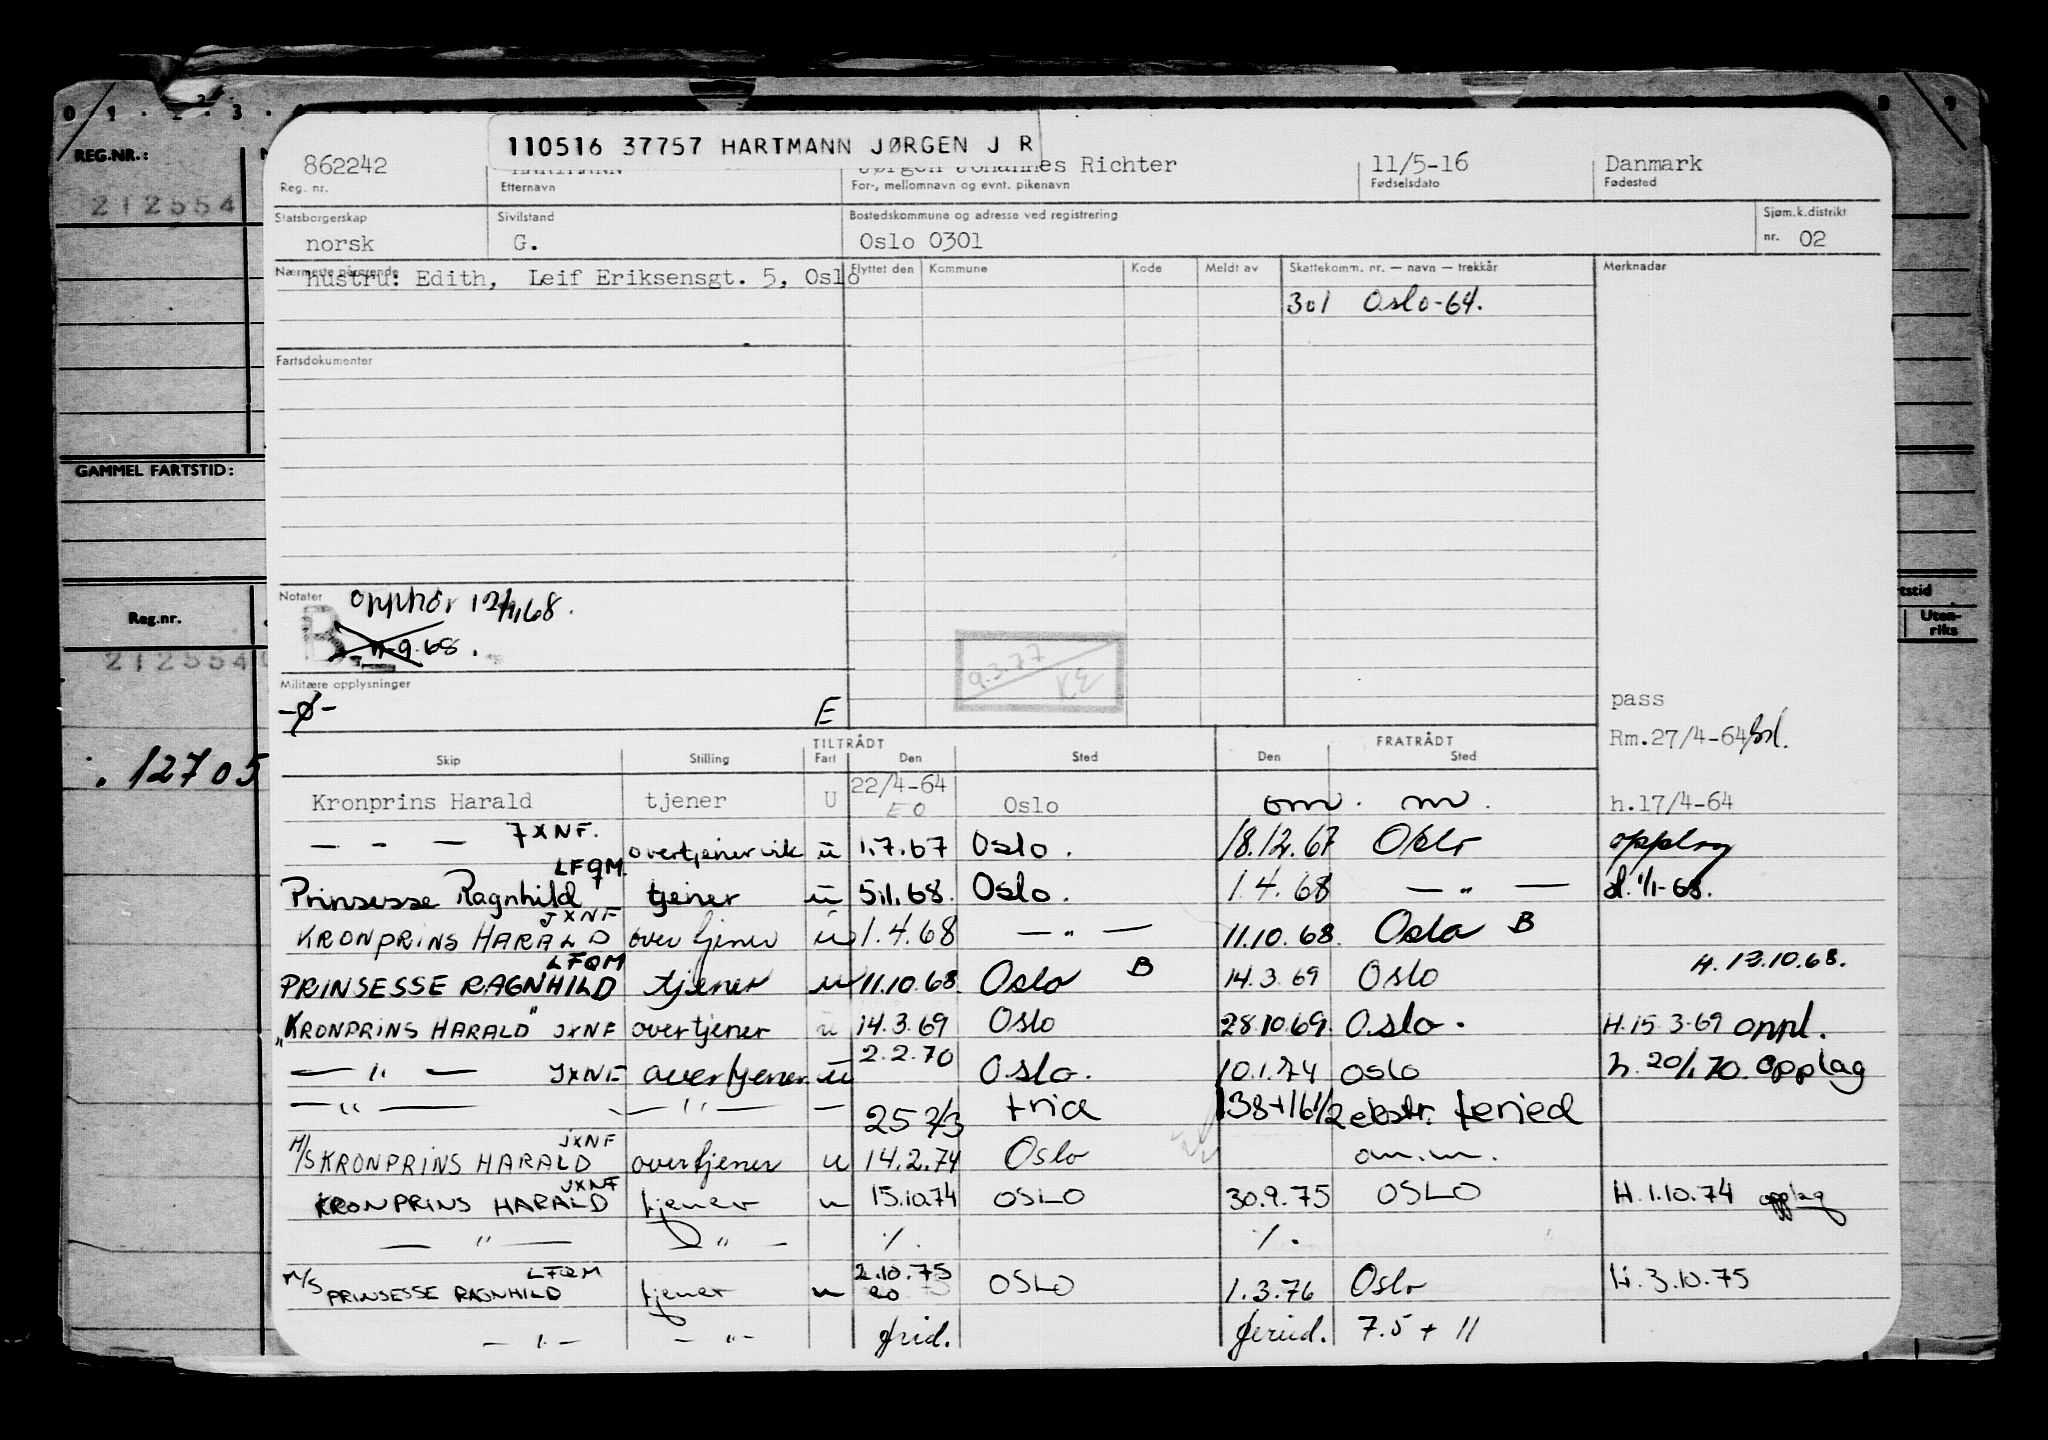 0 1 . 2 . 3 . 8 9
REG.NR.:
212554
GAMMEL FARTSTID:
Reg.nr.
212554
. 12705
Uten-
riks
110516 37757 HARTMANN JØRGEN J R
862242 HARTMANN Jørgen Johannes Richter 11/5-16 Danmark
Reg. nr. Etternavn For-, mellomnavn og evnt. pikenavn Fødselsdato Fødested
Statsborgerskap Sivilstand Bostedskommune og adresse ved registrering Sjøm.k.distrikt
norsk G. Oslo 0301 nr. 02
Nærmeste pårørende Flyttet den Kommune Kode Meldt av Skattekomm. nr. — navn — trekkår Merknader
hustru: Edith, Leif Eriksensgt. 5, Oslo
301 Oslo-64.
Fartsdokumenter
Notater opphør 12/11 68.
B 11-9.68.
9.3.77
KE
Militære opplysninger
-Ø- E
pass
Rm.27/4-64
TILTRÅDT FRATRÅDT
Skip Stilling Fart Den Sted Den Sted
Kronprins Harald tjener U 22/4-64 EO Oslo om. m. h.17/4-64
— - — JXNF. overtjener vik u 1.7.67 Oslo. 18.12.67 Oslo opplag
Prinsesse Ragnhild LFQM. tjener u 5.1.68. Oslo. 1.4.68 — " — d. 1/1-68.
KRONPRINS HARALD JXNF overtjener u 1.4.68 — " — 11.10.68. Oslo B
PRINSESSE RAGNHILD LFQM tjener u 11.10.68. Oslo B 14.3.69 Oslo H. 12.10.68.
"KRONPRINS HARALD" JXNF overtjener u 14.3.69 Oslo 28.10.69. Oslo. H.15.3.69 oppl.
— " — JXNF overtjener u 2.2.70 Oslo. 10.1.74 Oslo h. 20/1.70. Opplag
— " — — " — — 25 2/3 frid 138+16 1/2 ekstr. feried
M/S KRONPRINS HARALD JXNF overtjener u 14.2.74 Oslo om.m.
KRONPRINS HARALD JXNF tjener u 15.10.74 OSLO 30.9.75 OSLO H. 1.10.74 opplag
— " — — " — /. /.
M/S PRINSESSE RAGNHILD LFQM tjener u 2.10.75 eo OSLO 1.3.76 Oslo H. 3.10.75
— " — — " — frid. feried. 7.5 + 11